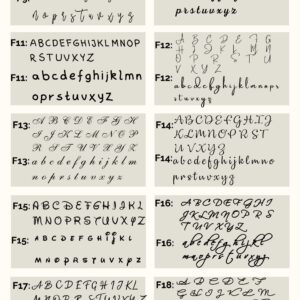 nopqrstuvwxyz
pqrstuvwxyz
F11: ABCDEFGHIJKLMNOP
RSTUVWXYZ
F11: abcdefghijklmn
opqrstuvwxyz
F12: ABCDEFG
HIJKLMN
OPQRSTU
VWXYZ
F12: abcdefghijklm
nopqrstuvwxyz
F13: ABCDEFGH
IJKLMNOP
QRSTUVWXYZ
F13: abcdefghijklm
nopqrstuvwxyz
F14: ABCDEFGHIJ
KLMNOPQRST
UVWXYZ
F14: abcdefghijklmno
pqrstuvwxyz
F15: ABCDEFGHIJKL
MNOPQRSTUVXYZ
F15: abcdefghijkl
mnopqrstuvxyz
F16: ABCDEFGH
IJKLMNOPQRS
TUVWXYZ
F16: abcdefghijkl
mnopqrstu
vwxyz
F17: ABCDEFGHIJKLM
F18: ABCDEFG
HIJKLM